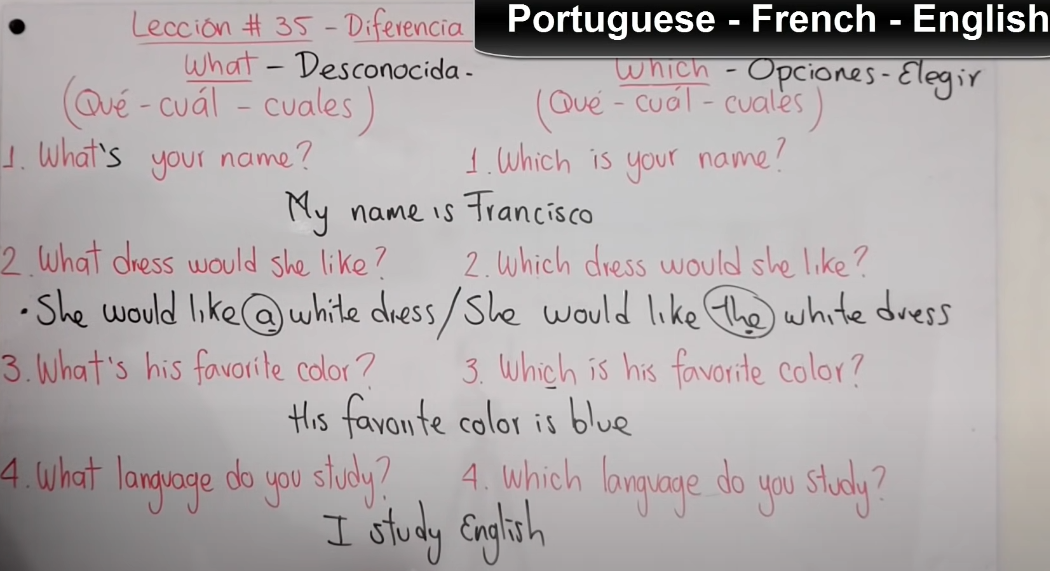 Portuguese - French - English
Lección # 35 - Diferencia
What - Desconocida.
Which - Opciones - Elegir
(Qué - cuál - cuales)
(Qué - cuál - cuales)
1. What's your name?
1. Which is your name?
My name is Francisco
2. What dress would she like?
2. Which dress would she like?
• She would like a white dress / She would like the white dress
3. What's his favorite color?
3. Which is his favorite color?
His favorite color is blue
4. What language do you study?
4. Which language do you study?
I study English